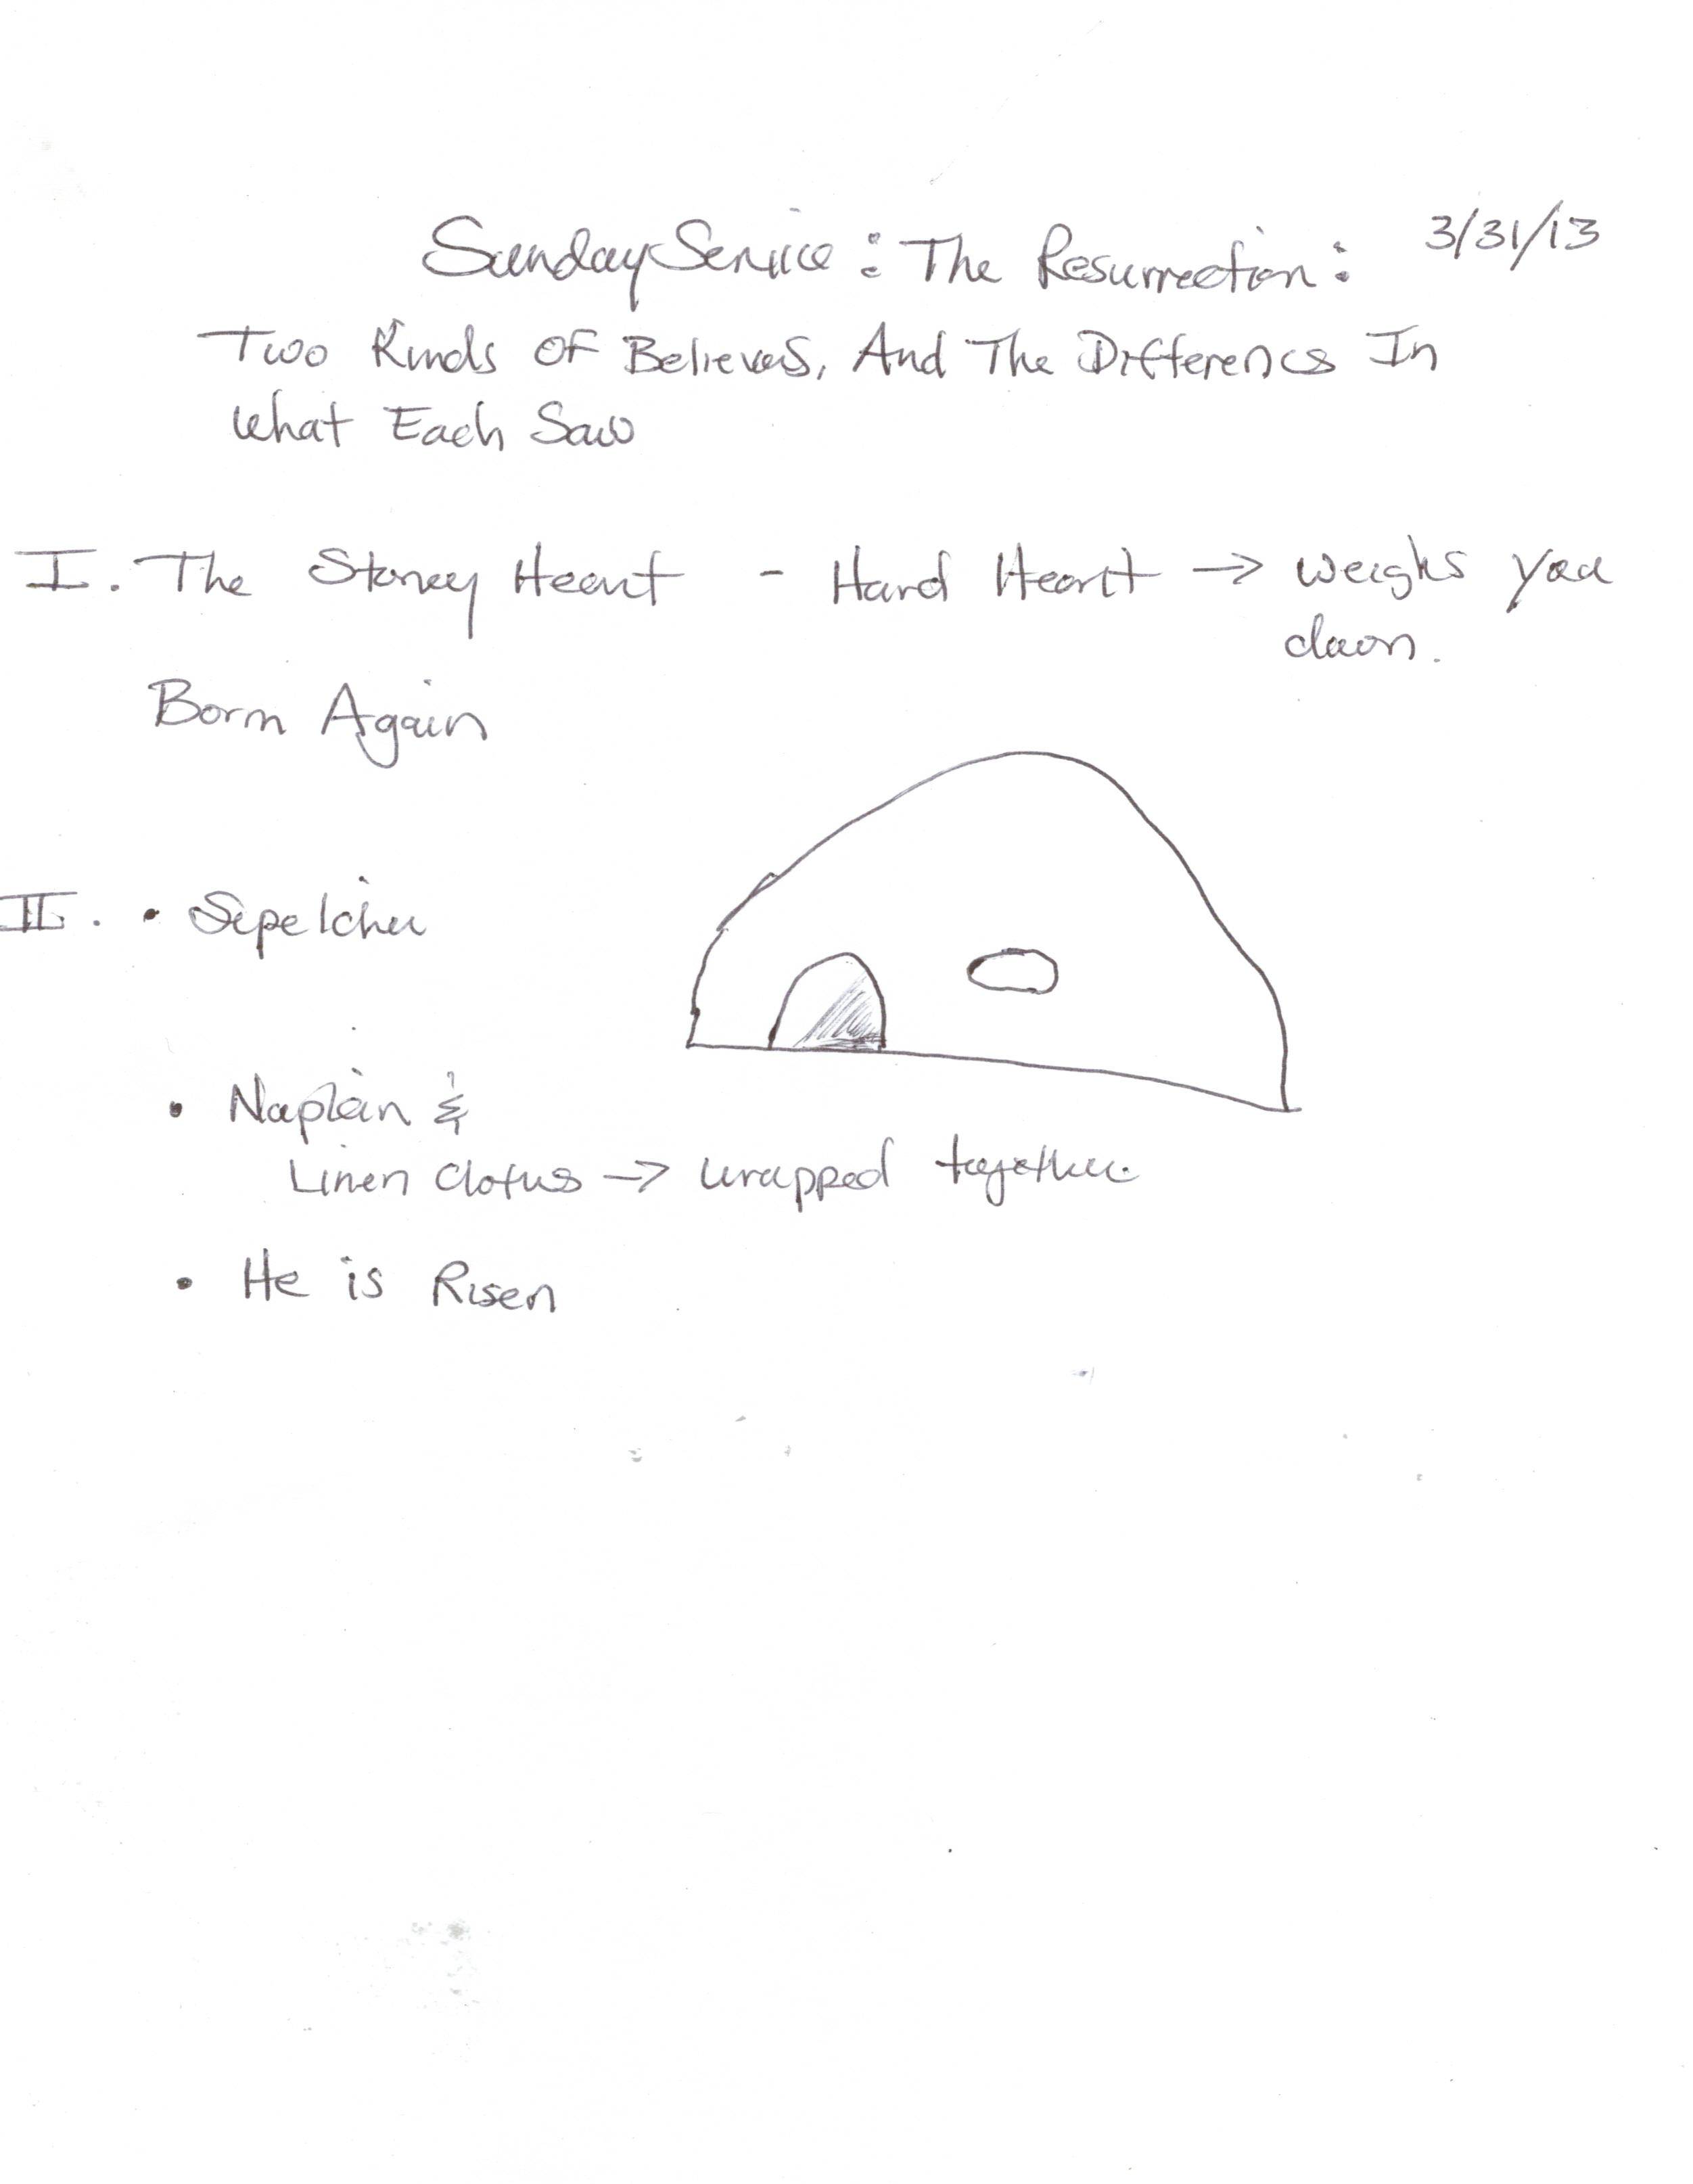 Sunday Service : The Resurrection : 3/31/13
Two Kinds Of Believers, And The Difference In
What Each Saw
I. The Stoney Heart - Hard Heart → weighs you
down.
Born Again
II. • Sepelcher
• Napkin &
Linen Cloths → wrapped together
• He is Risen